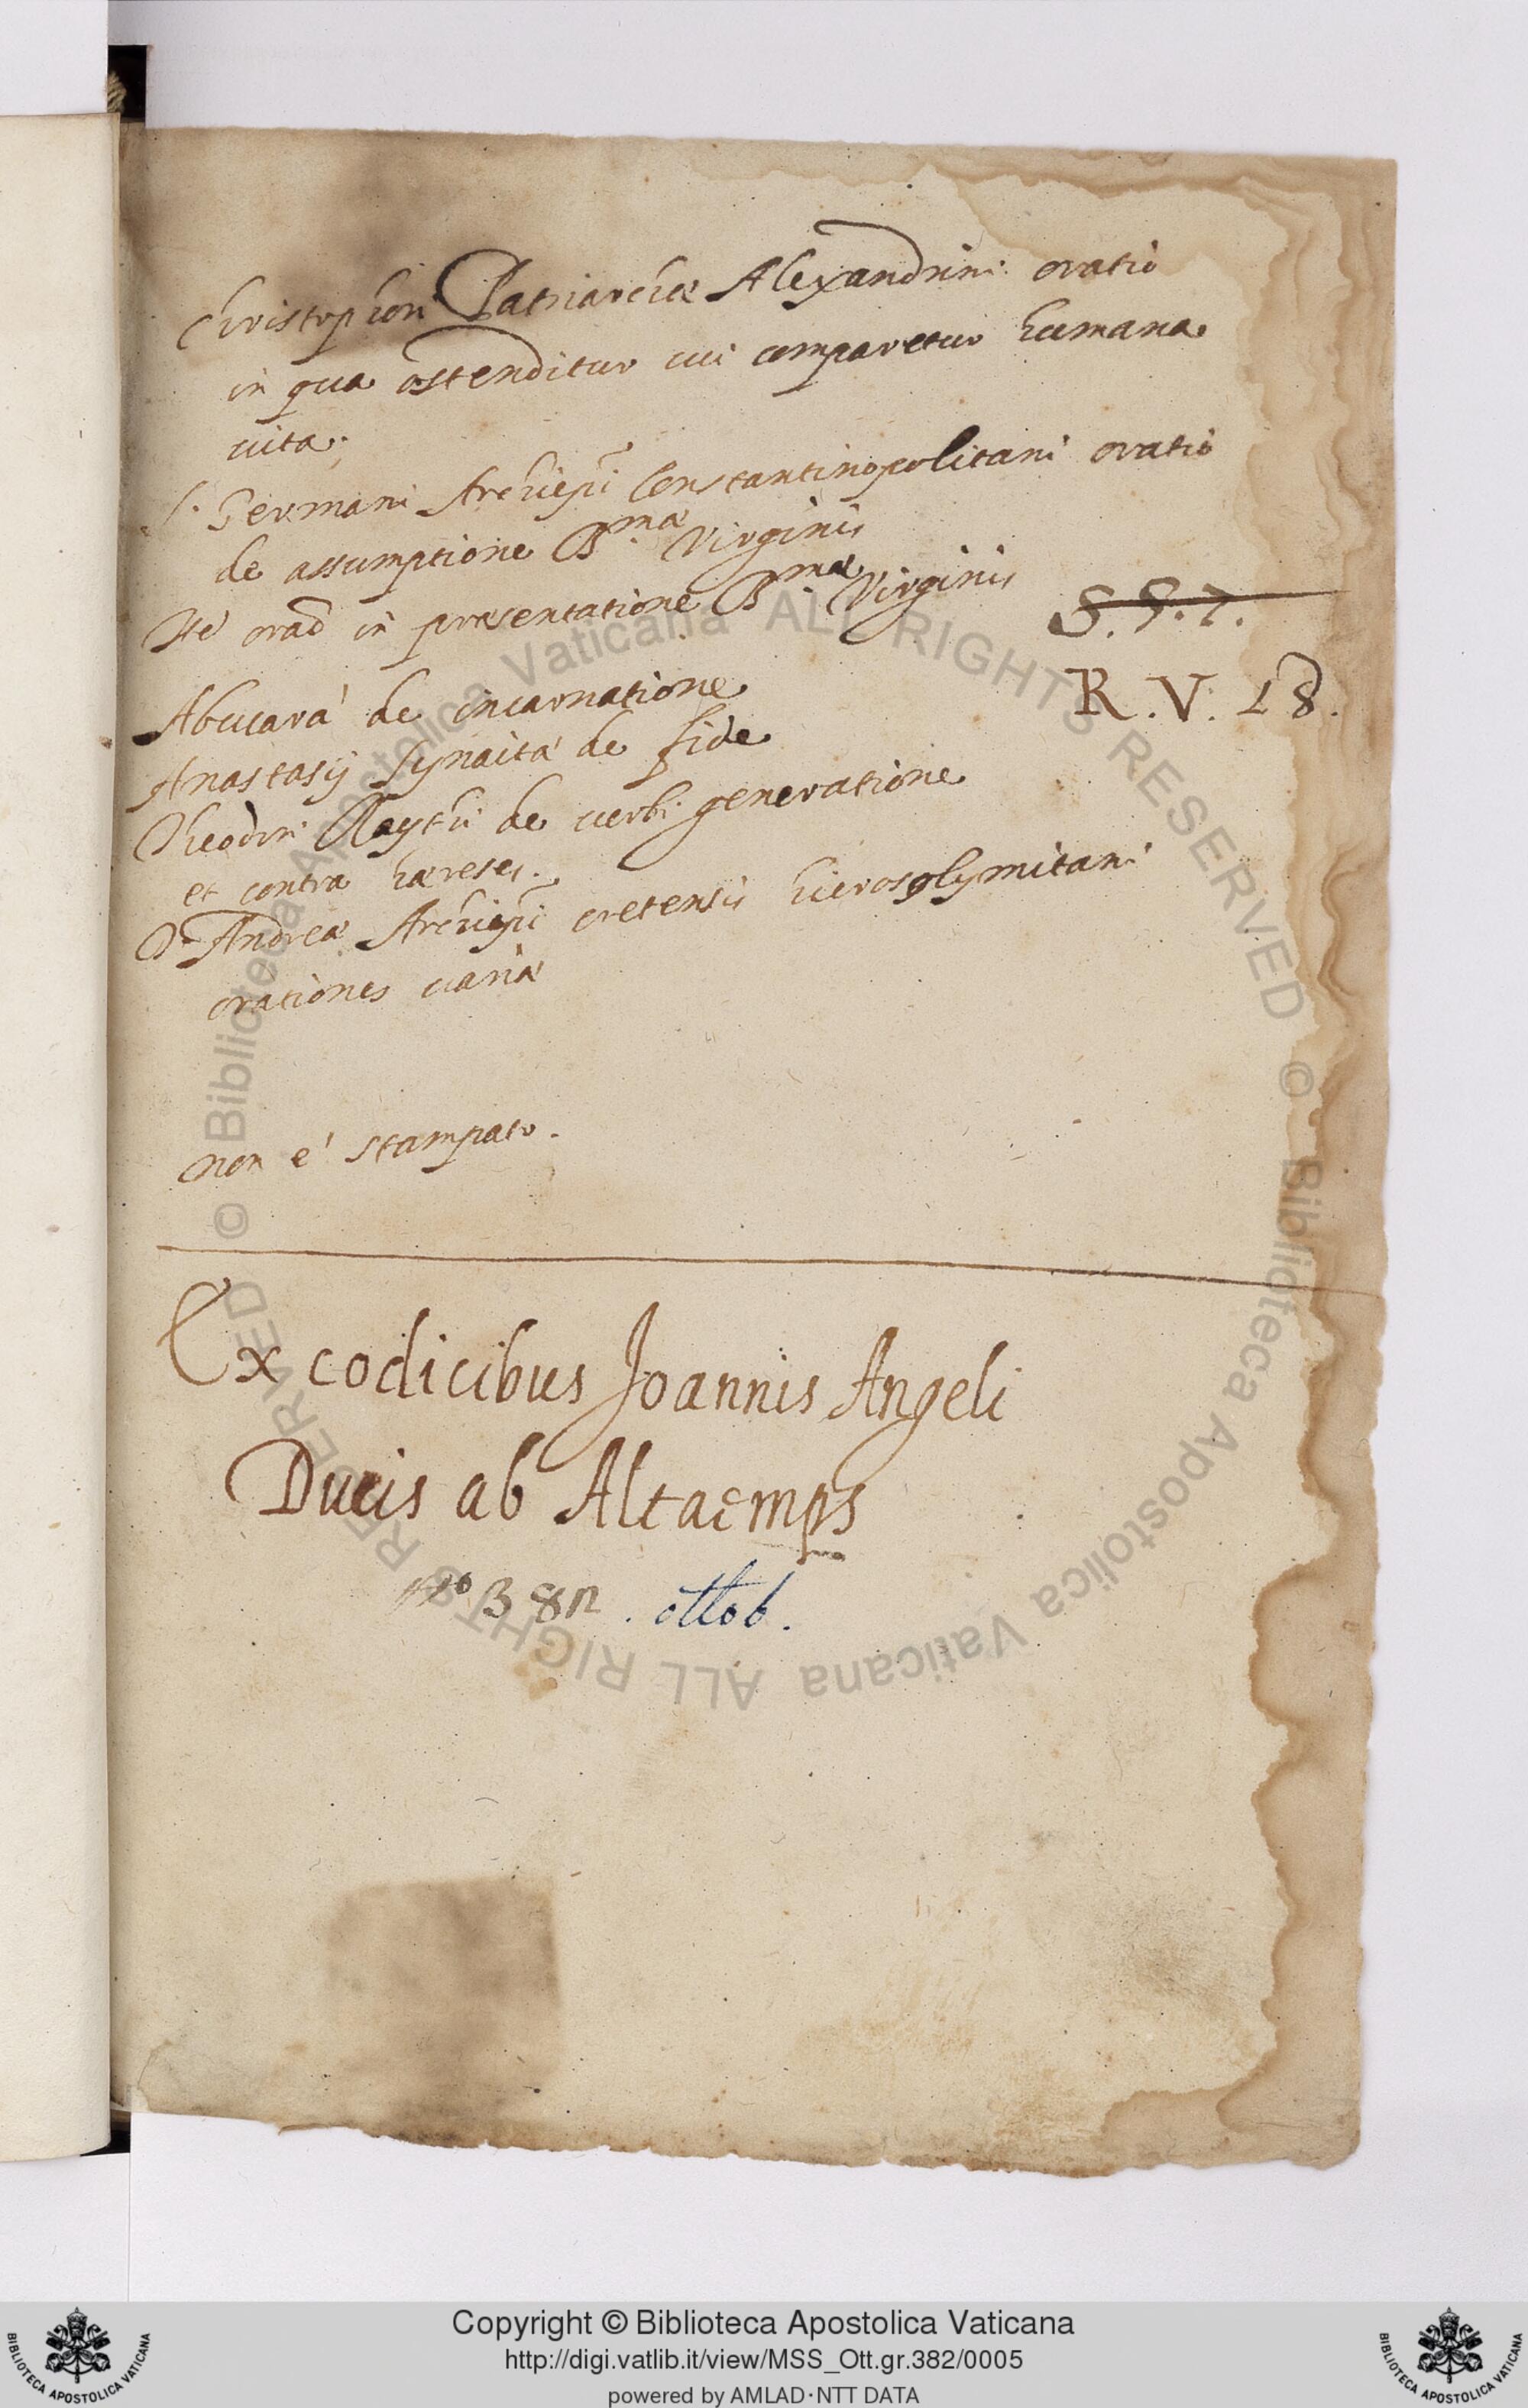 Christophori Patriarchæ Alexandrini oratio
in qua ostenditur cui comparetur humana
vita.
S. Germani Archiepi Constantinopolitani oratio
de assumptione B.mæ Virginis
Ite orao in præsentatione B.mæ Virginis
S. S. 7.
R. V. 18.
Abucara de incarnatione
Anastasij Synaitæ de fide
Theodori Raythi de verbi generatione
et contra hæreses.
D. Andreæ Archiepi cretensis hierosolymitani
orationes variæ
non e' stampato.
Ex codicibus Joannis Angeli
Ducis ab Altaemps
ottob.
© Biblioteca Apostolica Vaticana ALL RIGHTS RESERVED
© Biblioteca Apostolica Vaticana ALL RIGHTS RESERVED
Copyright © Biblioteca Apostolica Vaticana
http://digi.vatlib.it/view/MSS_Ott.gr.382/0005
powered by AMLAD·NTT DATA
BIBLIOTECA APOSTOLICA VATICANA
BIBLIOTECA APOSTOLICA VATICANA